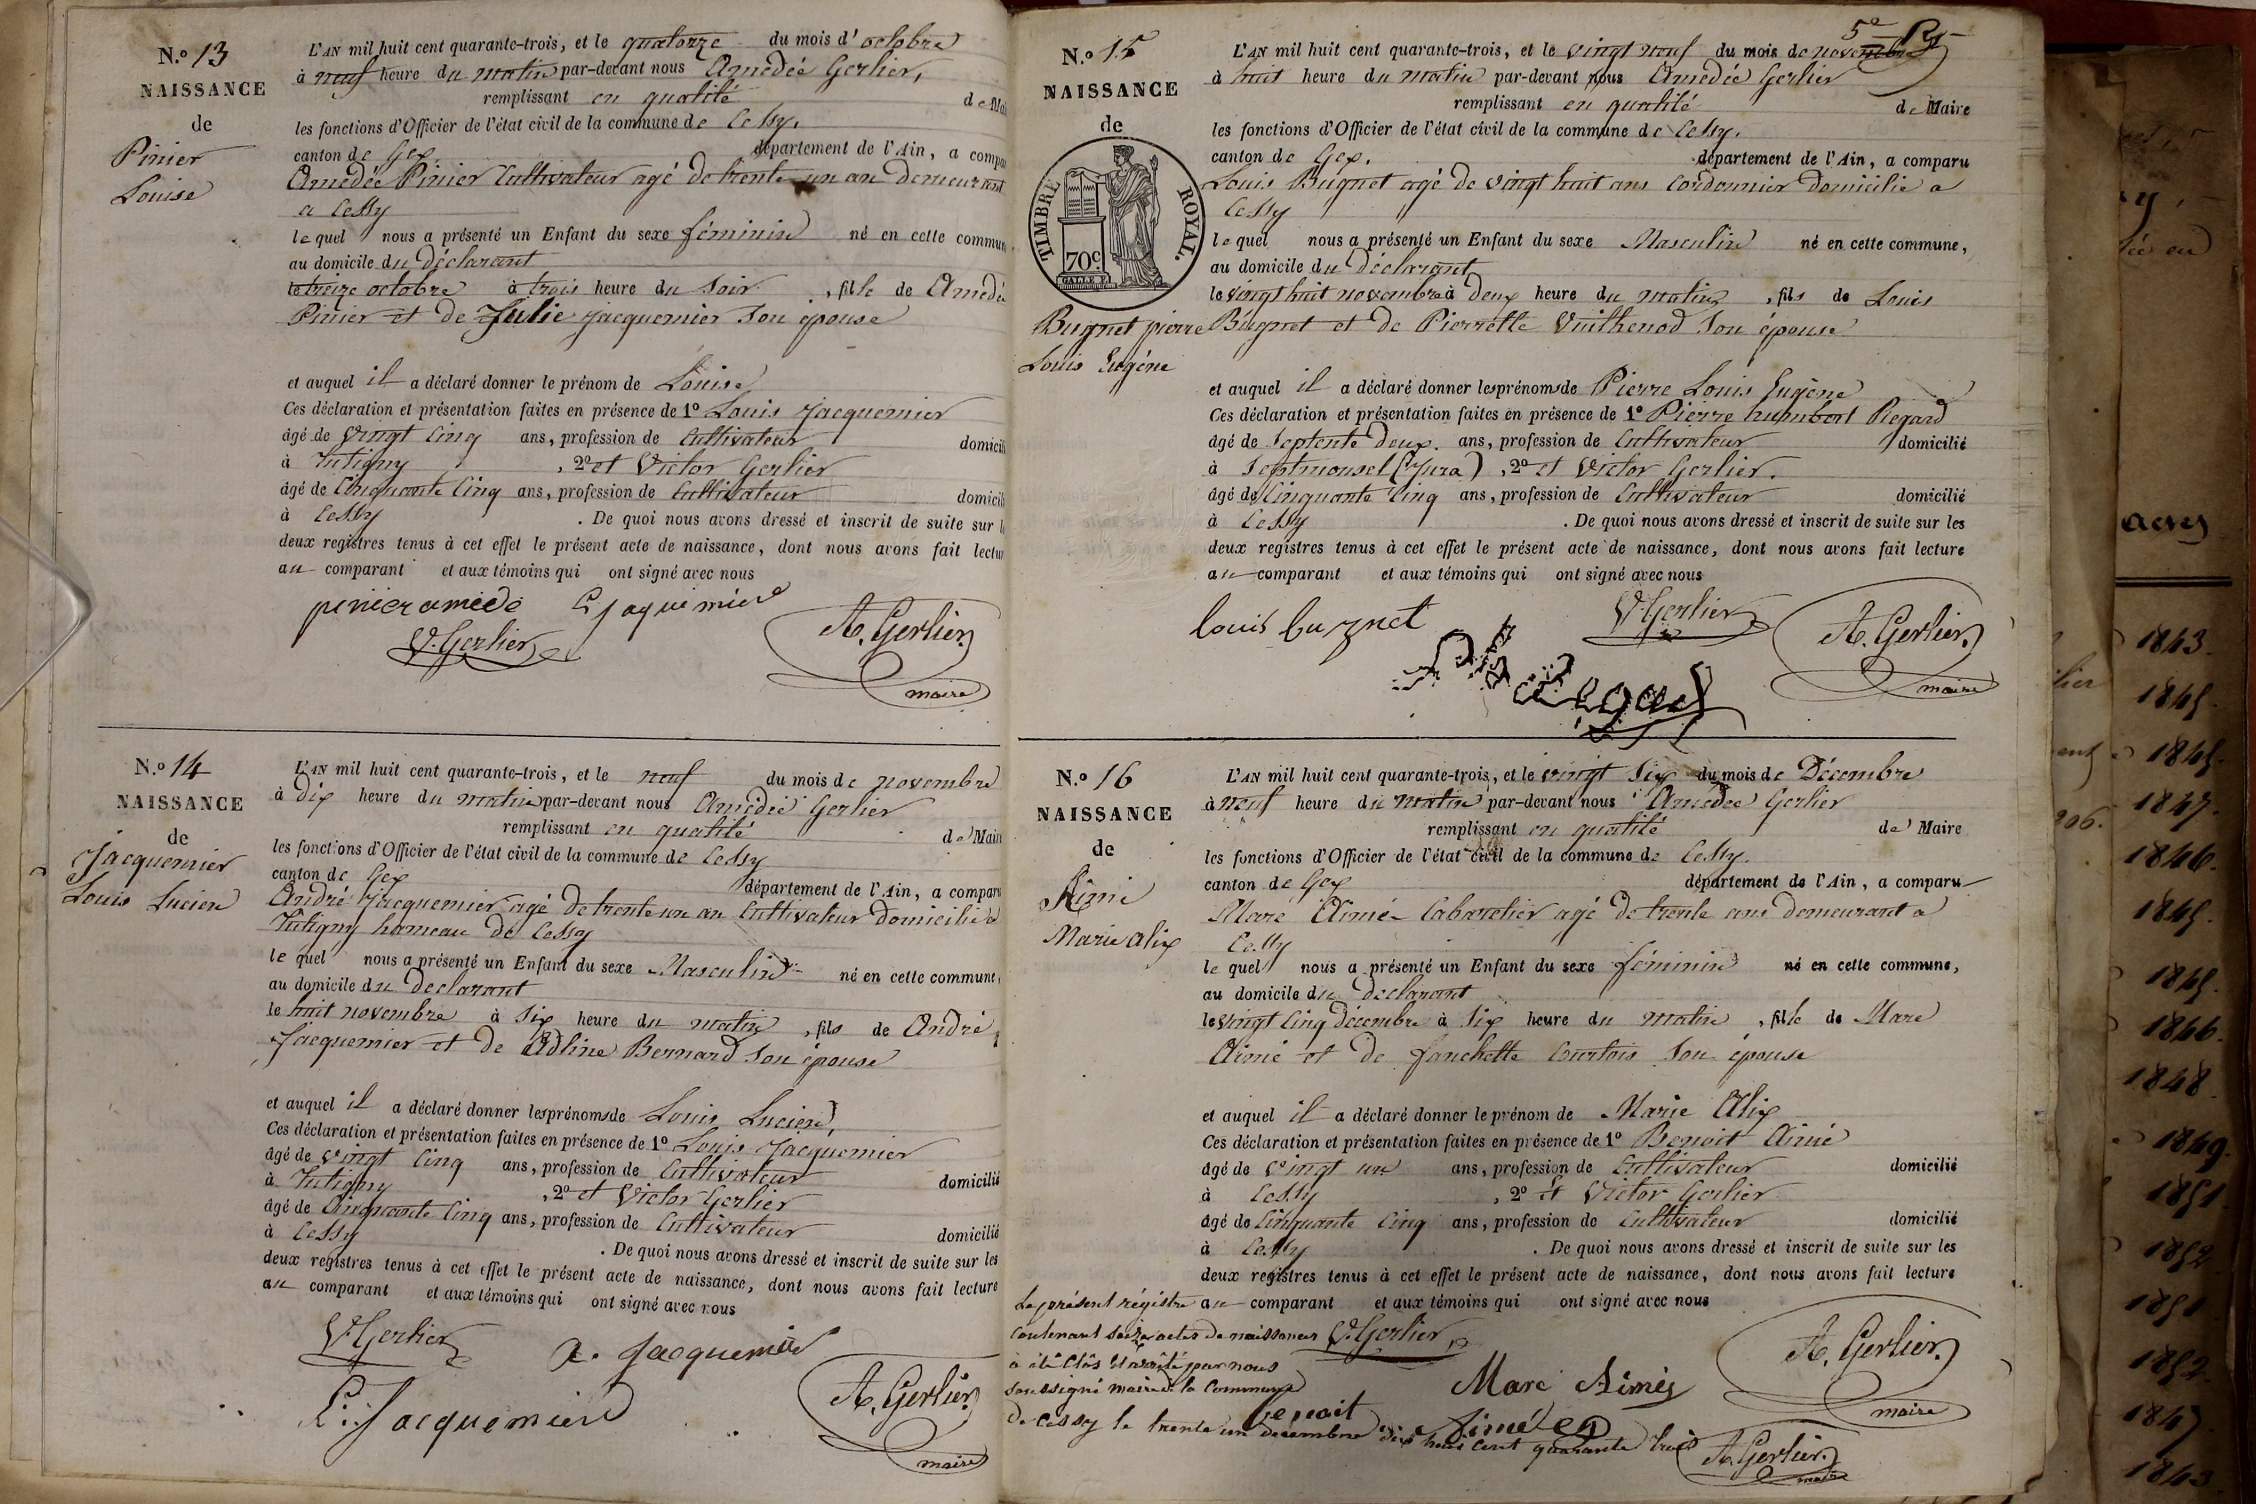 N.o 13
NAISSANCE
de
Pinier
Louise
L'AN mil huit cent quarante-trois, et le quatorze du mois d'octobre
à neuf heure du matin par-devant nous Amédée Gerlier,
remplissant en qualité de Mai
les fonctions d'Officier de l'état civil de la commune de Cessy.
canton de Gex département de l'Ain, a compa
Amédée Pinier Cultivateur agé de trente un an demeurant
a Cessy
le quel nous a présenté un Enfant du sexe féminin né en cette commun
au domicile du déclarant
le treize octobre à trois heure du soir, fille de Amédée
Pinier et de Julie jacquemier son épouse
et auquel il a déclaré donner le prénom de Louise
Ces déclaration et présentation faites en présence de 1o Louis Jacquemier
âgé de vingt cinq ans, profession de Cultivateur domicili
à Tutigny, 2o et Victor Gerlier
âgé de Cinquante Cinq ans, profession de Cultivateur domicili
à Cessy. De quoi nous avons dressé et inscrit de suite sur l
deux registres tenus à cet effet le présent acte de naissance, dont nous avons fait lectur
au comparant et aux témoins qui ont signé avec nous
pinier amédé L Jaquemier
V. Gerlier A. Gerlier.
maire
N.o 14
NAISSANCE
de
Jacquemier
Louis Lucien
L'AN mil huit cent quarante-trois, et le neuf du mois de novembre
à dix heure du matin par-devant nous Amédée Gerlier
remplissant en qualité de Mair
les fonctions d'Officier de l'état civil de la commune de Cessy
canton de Gex département de l'Ain, a comparu
André Jacquemier agé de trente un an Cultivateur domicilié a
Tutigny hameau de Cessy
le quel nous a présenté un Enfant du sexe Masculin né en cette commune,
au domicile du declarant
le huit novembre à six heure du matin, fils de André
Jacquemier et de Adline Bernard son épouse
et auquel il a déclaré donner les prénoms de Louis Lucien,
Ces déclaration et présentation faites en présence de 1o Louis Jacquemier
âgé de vingt cinq ans, profession de Cultivateur domicilié
à Tutigny, 2o et Victor Gerlier
âgé de Cinquante Cinq ans, profession de Cultivateur domicilié
à Cessy. De quoi nous avons dressé et inscrit de suite sur les
deux registres tenus à cet effet le présent acte de naissance, dont nous avons fait lecture
au comparant et aux témoins qui ont signé avec nous
V. Gerlier a. Jacquemier
L. Jacquemier A. Gerlier.
maire
5e
N.o 15
NAISSANCE
de
TIMBRE ROYAL.
70c
Bugnet pierre
Louis Eugène
L'AN mil huit cent quarante-trois, et le vingt neuf du mois de novembre
à huit heure du matin par-devant nous Amédée Gerlier
remplissant en qualité de Maire
les fonctions d'Officier de l'état civil de la commune de Cessy.
canton de Gex. département de l'Ain, a comparu
Louis Bugnet agé de vingt huit ans Cordonnier domicilié a
Cessy
le quel nous a présenté un Enfant du sexe Masculin né en cette commune,
au domicile du déclarant
le vingt huit novembre à deux heure du matin, fils de Louis
Bugnet et de Pierrette Vuithenod son épouse
et auquel il a déclaré donner les prénoms de Pierre Louis Eugène
Ces déclaration et présentation faites en présence de 1o Pierre humbert Regard
âgé de septente deux ans, profession de Cultivateur domicilié
à Septmonsel (Jura), 2o et Victor Gerlier.
âgé de Cinquante Cinq ans, profession de Cultivateur domicilié
à Cessy. De quoi nous avons dressé et inscrit de suite sur les
deux registres tenus à cet effet le présent acte de naissance, dont nous avons fait lecture
au comparant et aux témoins qui ont signé avec nous
louis bugnet V. Gerlier A. Gerlier.
maire
N.o 16
NAISSANCE
de
Aimé
Marie alix
L'AN mil huit cent quarante-trois, et le vingt six du mois de Décembre
à neuf heure du matin par-devant nous Amédée Gerlier
remplissant en qualité de Maire
les fonctions d'Officier de l'état civil de la commune de Cessy.
canton de Gex département de l'Ain, a comparu
Marc Aimé Cabaretier agé de trente ans demeurant a
Cessy
le quel nous a présenté un Enfant du sexe féminin né en cette commune,
au domicile du declarant
le vingt cinq décembre à six heure du matin, fille de Marc
Aimé et de fanchette Courtois son épouse
et auquel il a déclaré donner le prénom de Marie Alix
Ces déclaration et présentation faites en présence de 1o Benoit Aimé
âgé de vingt un ans, profession de Cultivateur domicilié
à Cessy, 2o et Victor Gerlier
âgé de Cinquante cinq ans, profession de Cultivateur domicilié
à Cessy. De quoi nous avons dressé et inscrit de suite sur les
deux registres tenus à cet effet le présent acte de naissance, dont nous avons fait lecture
au comparant et aux témoins qui ont signé avec nous
V. Gerlier A. Gerlier.
Marc Aimé maire
benoit aimé
Le présent régistre
contenant seize actes de naissances
à été Clôs et arrêté par nous
soussigné maire de la Commune
de Cessy le trente un decembre dix huit cent quarante trois
A. Gerlier.
maire
actes
1843.
1845.
1845.
1847.
1846.
1845.
1845.
1846.
1848
1849.
1851.
1852
1851
1852.
1847.
1843